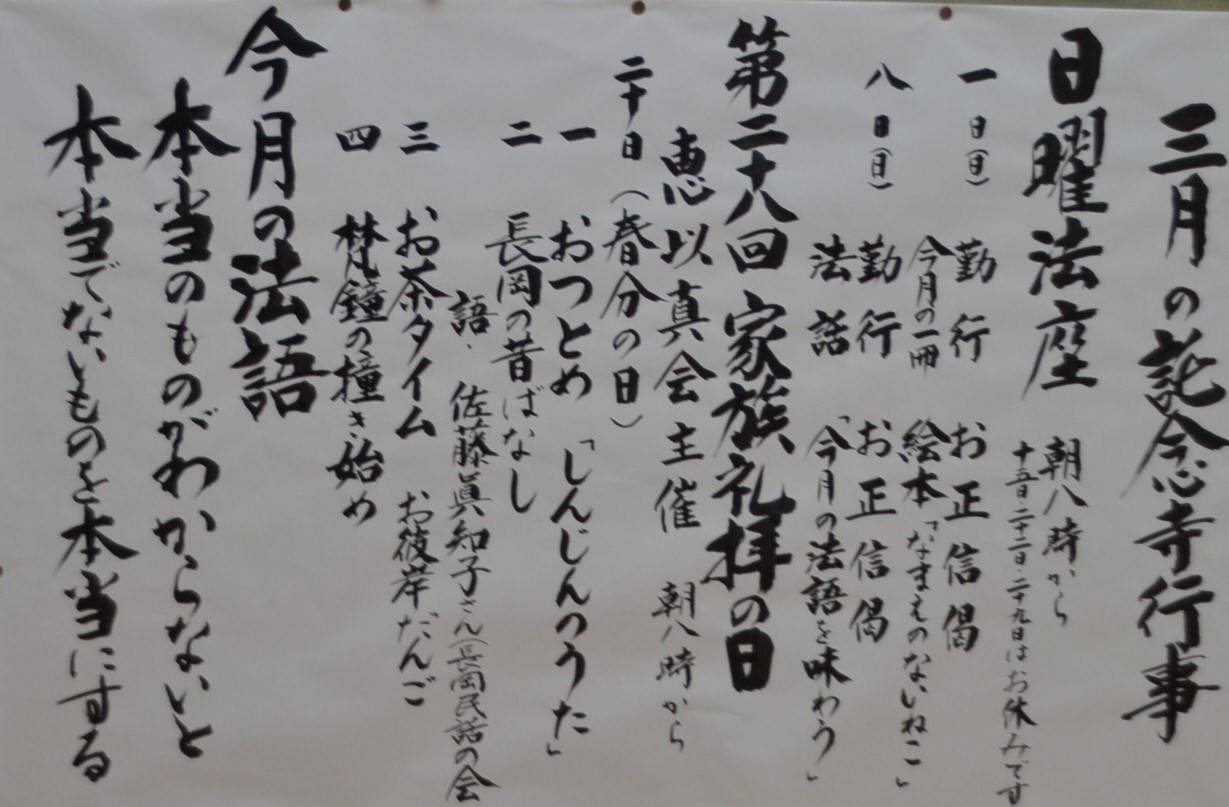 三月の託念寺行事
日曜法座 朝八時から
十五日・二十二日・二十九日はお休みです
一日(日) 勤行 お正信偈
今月の一冊 絵本「なまえのないねこ」
八日(日) 勤行 お正信偈
法話 「今月の法語を味わう」
第二十八回 家族礼拝の日
恵以真会主催 朝八時から
二十日(春分の日)
一 おつとめ 「しんじんのうた」
二 長岡の昔ばなし
語・ 佐藤眞知子さん(長岡民話の会
三 お茶タイム お彼岸だんご
四 梵鐘の撞き始め
今月の法語
本当のものがわからないと
本当でないものを本当にする